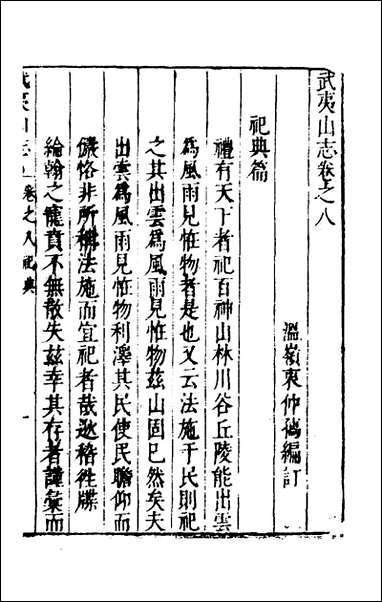 武夷山志卷之八
溫嶺衷仲孺編訂
祀典篇
禮有天下者祀百神山林川谷丘陵能出雲
為風雨見恠物者是也又云法施于民則祀
之其出雲為風雨見恠物茲山固已然矣夫
出雲為風雨見恠物利澤其民使民瞻仰而
儼恪非所稱法施而宜祀者哉逖稽徃牒
綸翰之寵賁不無散失茲幸其存者謹彙而
武夷山志 卷之八祀典 一